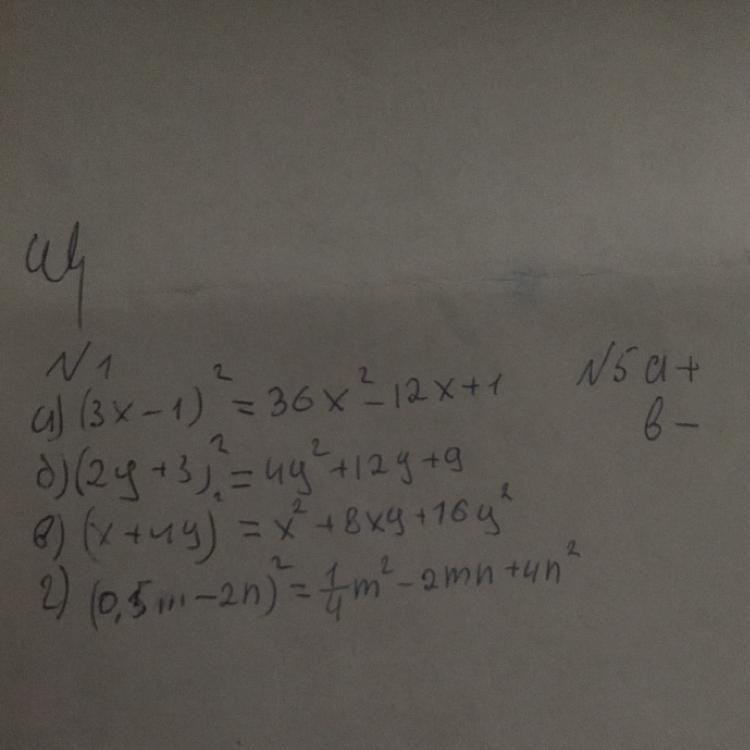 №1
а) (3x-1)² = 36x² - 12x + 1
б) (2y+3)² = 4y² + 12y + 9
в) (x+4y)² = x² + 8xy + 16y²
г) (0,5m-2n)² = 1/4 m² - 2mn + 4n²
№5 а +
в -